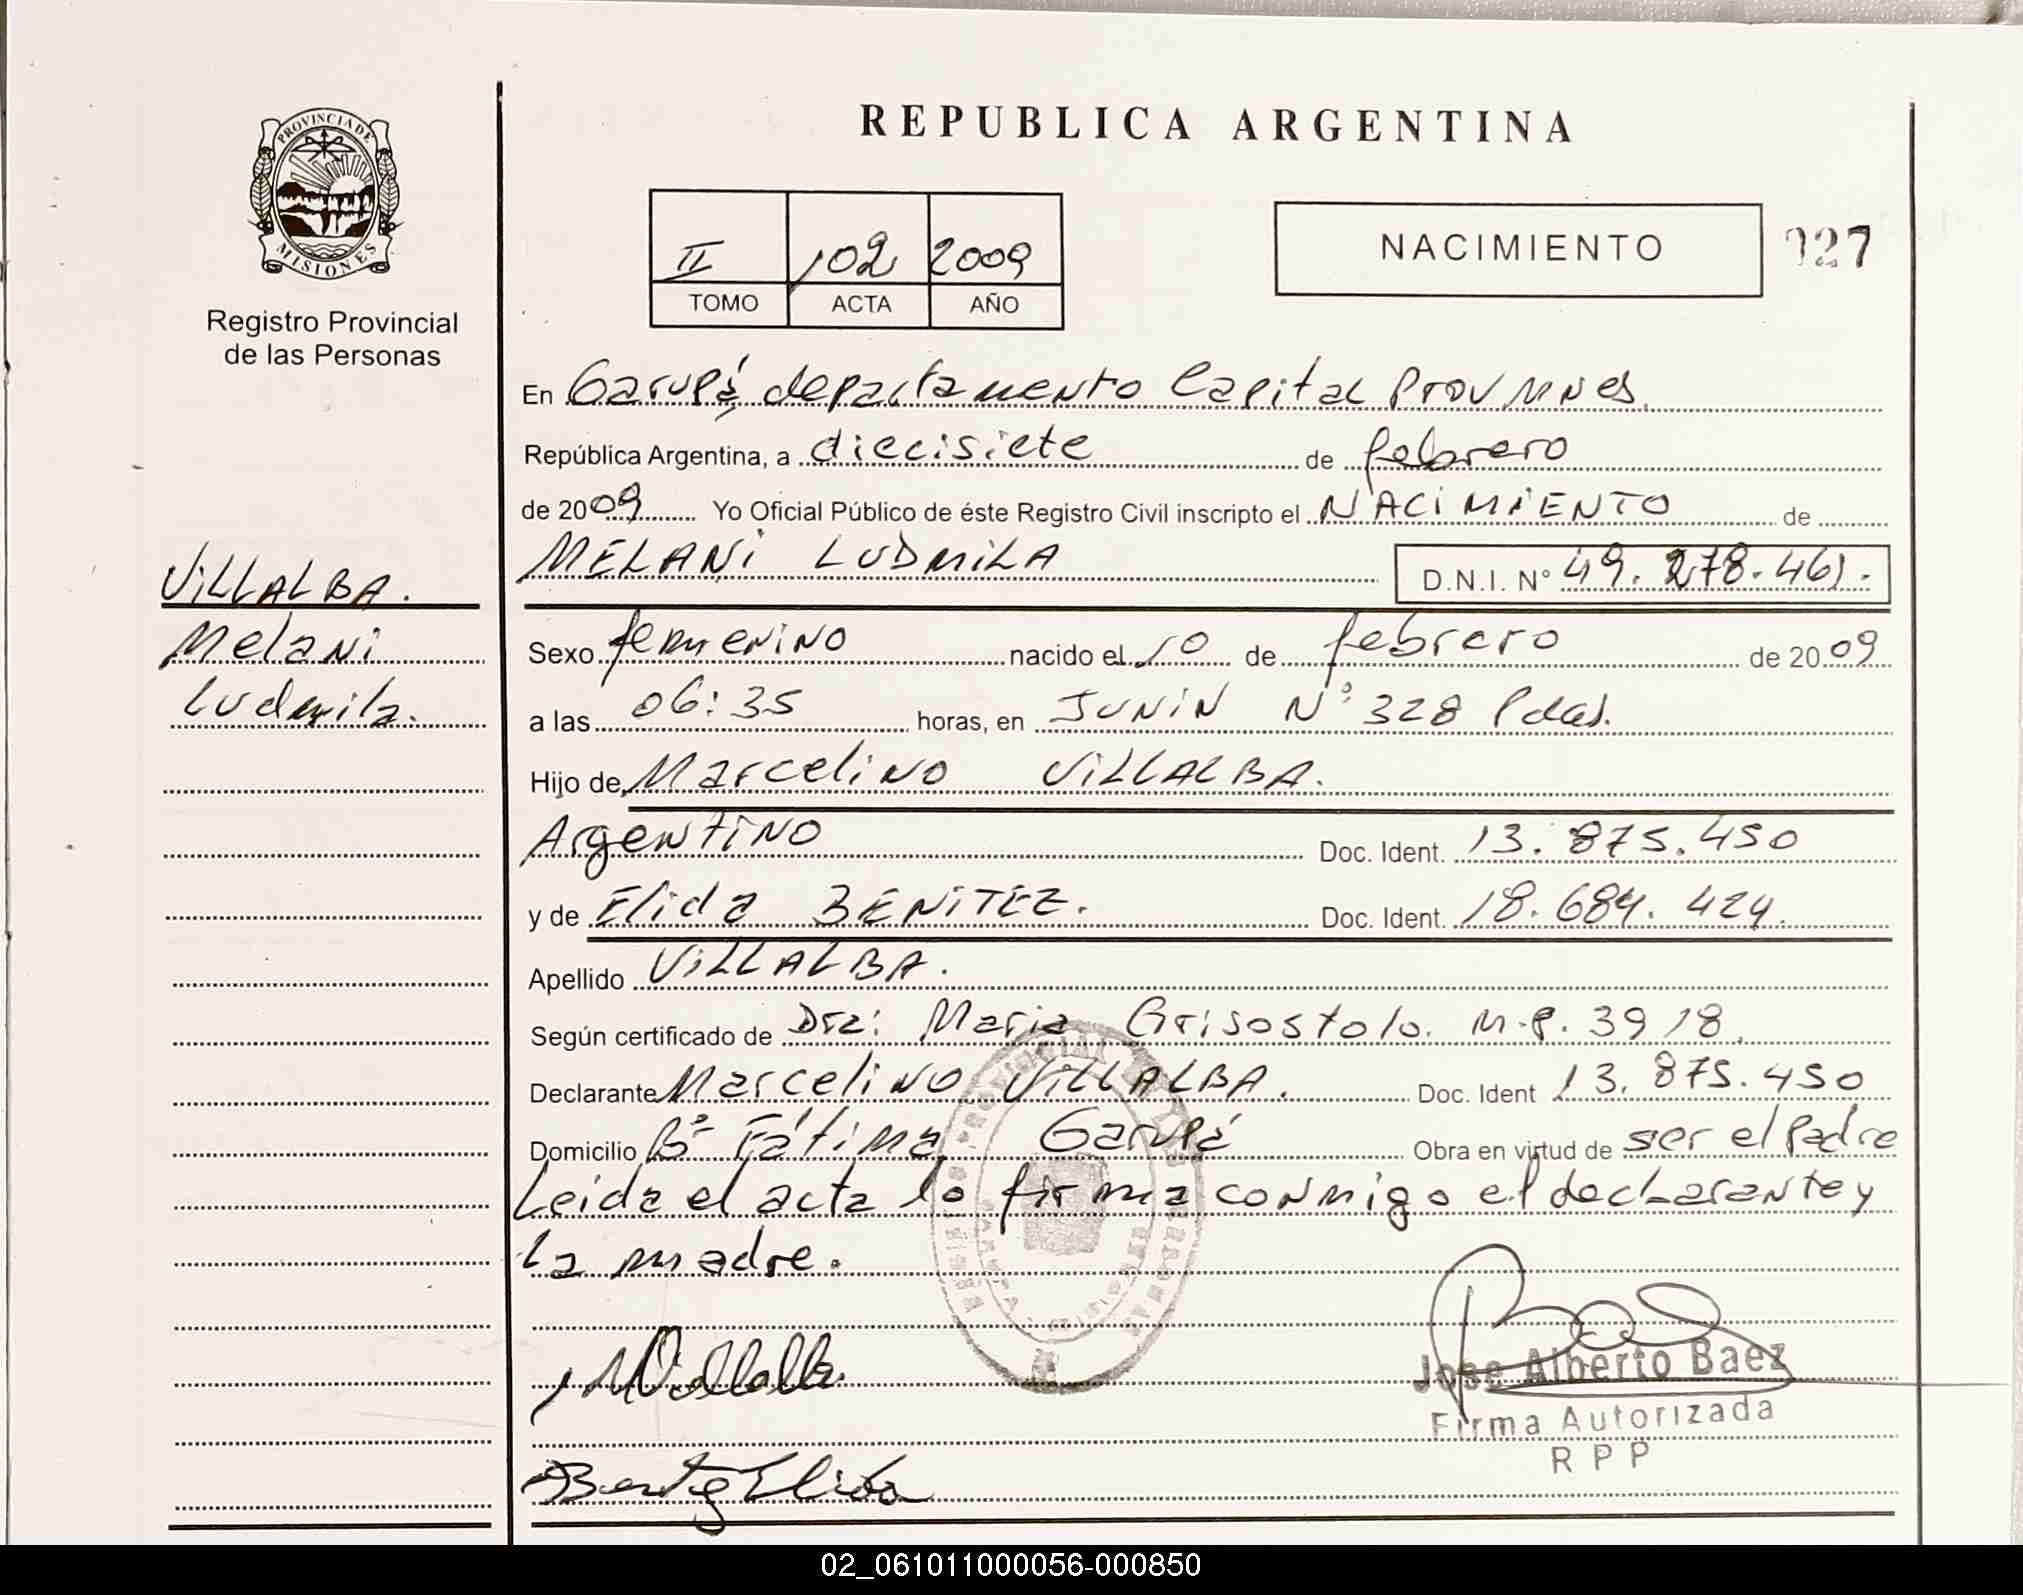 REPUBLICA ARGENTINA
PROVINCIA DE
MISIONES
Registro Provincial
de las Personas
II 102 2009
TOMO ACTA AÑO
NACIMIENTO
027
En Garupá, departamento Capital Prov Mnes.
República Argentina, a diecisiete de febrero
de 2009 Yo Oficial Público de éste Registro Civil inscripto el NACIMIENTO de
MELANI LUDMILA D.N.I. N° 49.278.461.
VILLALBA.
Melani
Ludmila.
Sexo femenino nacido el 10 de febrero de 2009
a las 06:35 horas, en JUNIN N° 328 Pdas.
Hijo de Marcelino VILLALBA.
Argentino Doc. Ident. 13.875.450
y de Elida BENITEZ. Doc. Ident. 18.684.424.
Apellido VILLALBA.
Según certificado de Dra: Maria Grisostolo. M.P. 3918.
Declarante Marcelino VILLALBA. Doc. Ident 13.875.450
Domicilio Bº Fátima Garupá Obra en virtud de ser el Padre
Leida el acta lo firma conmigo el declarante y
la madre.
Jose Alberto Baez
Firma Autorizada
RPP
Benitez Elida
02_061011000056-000850